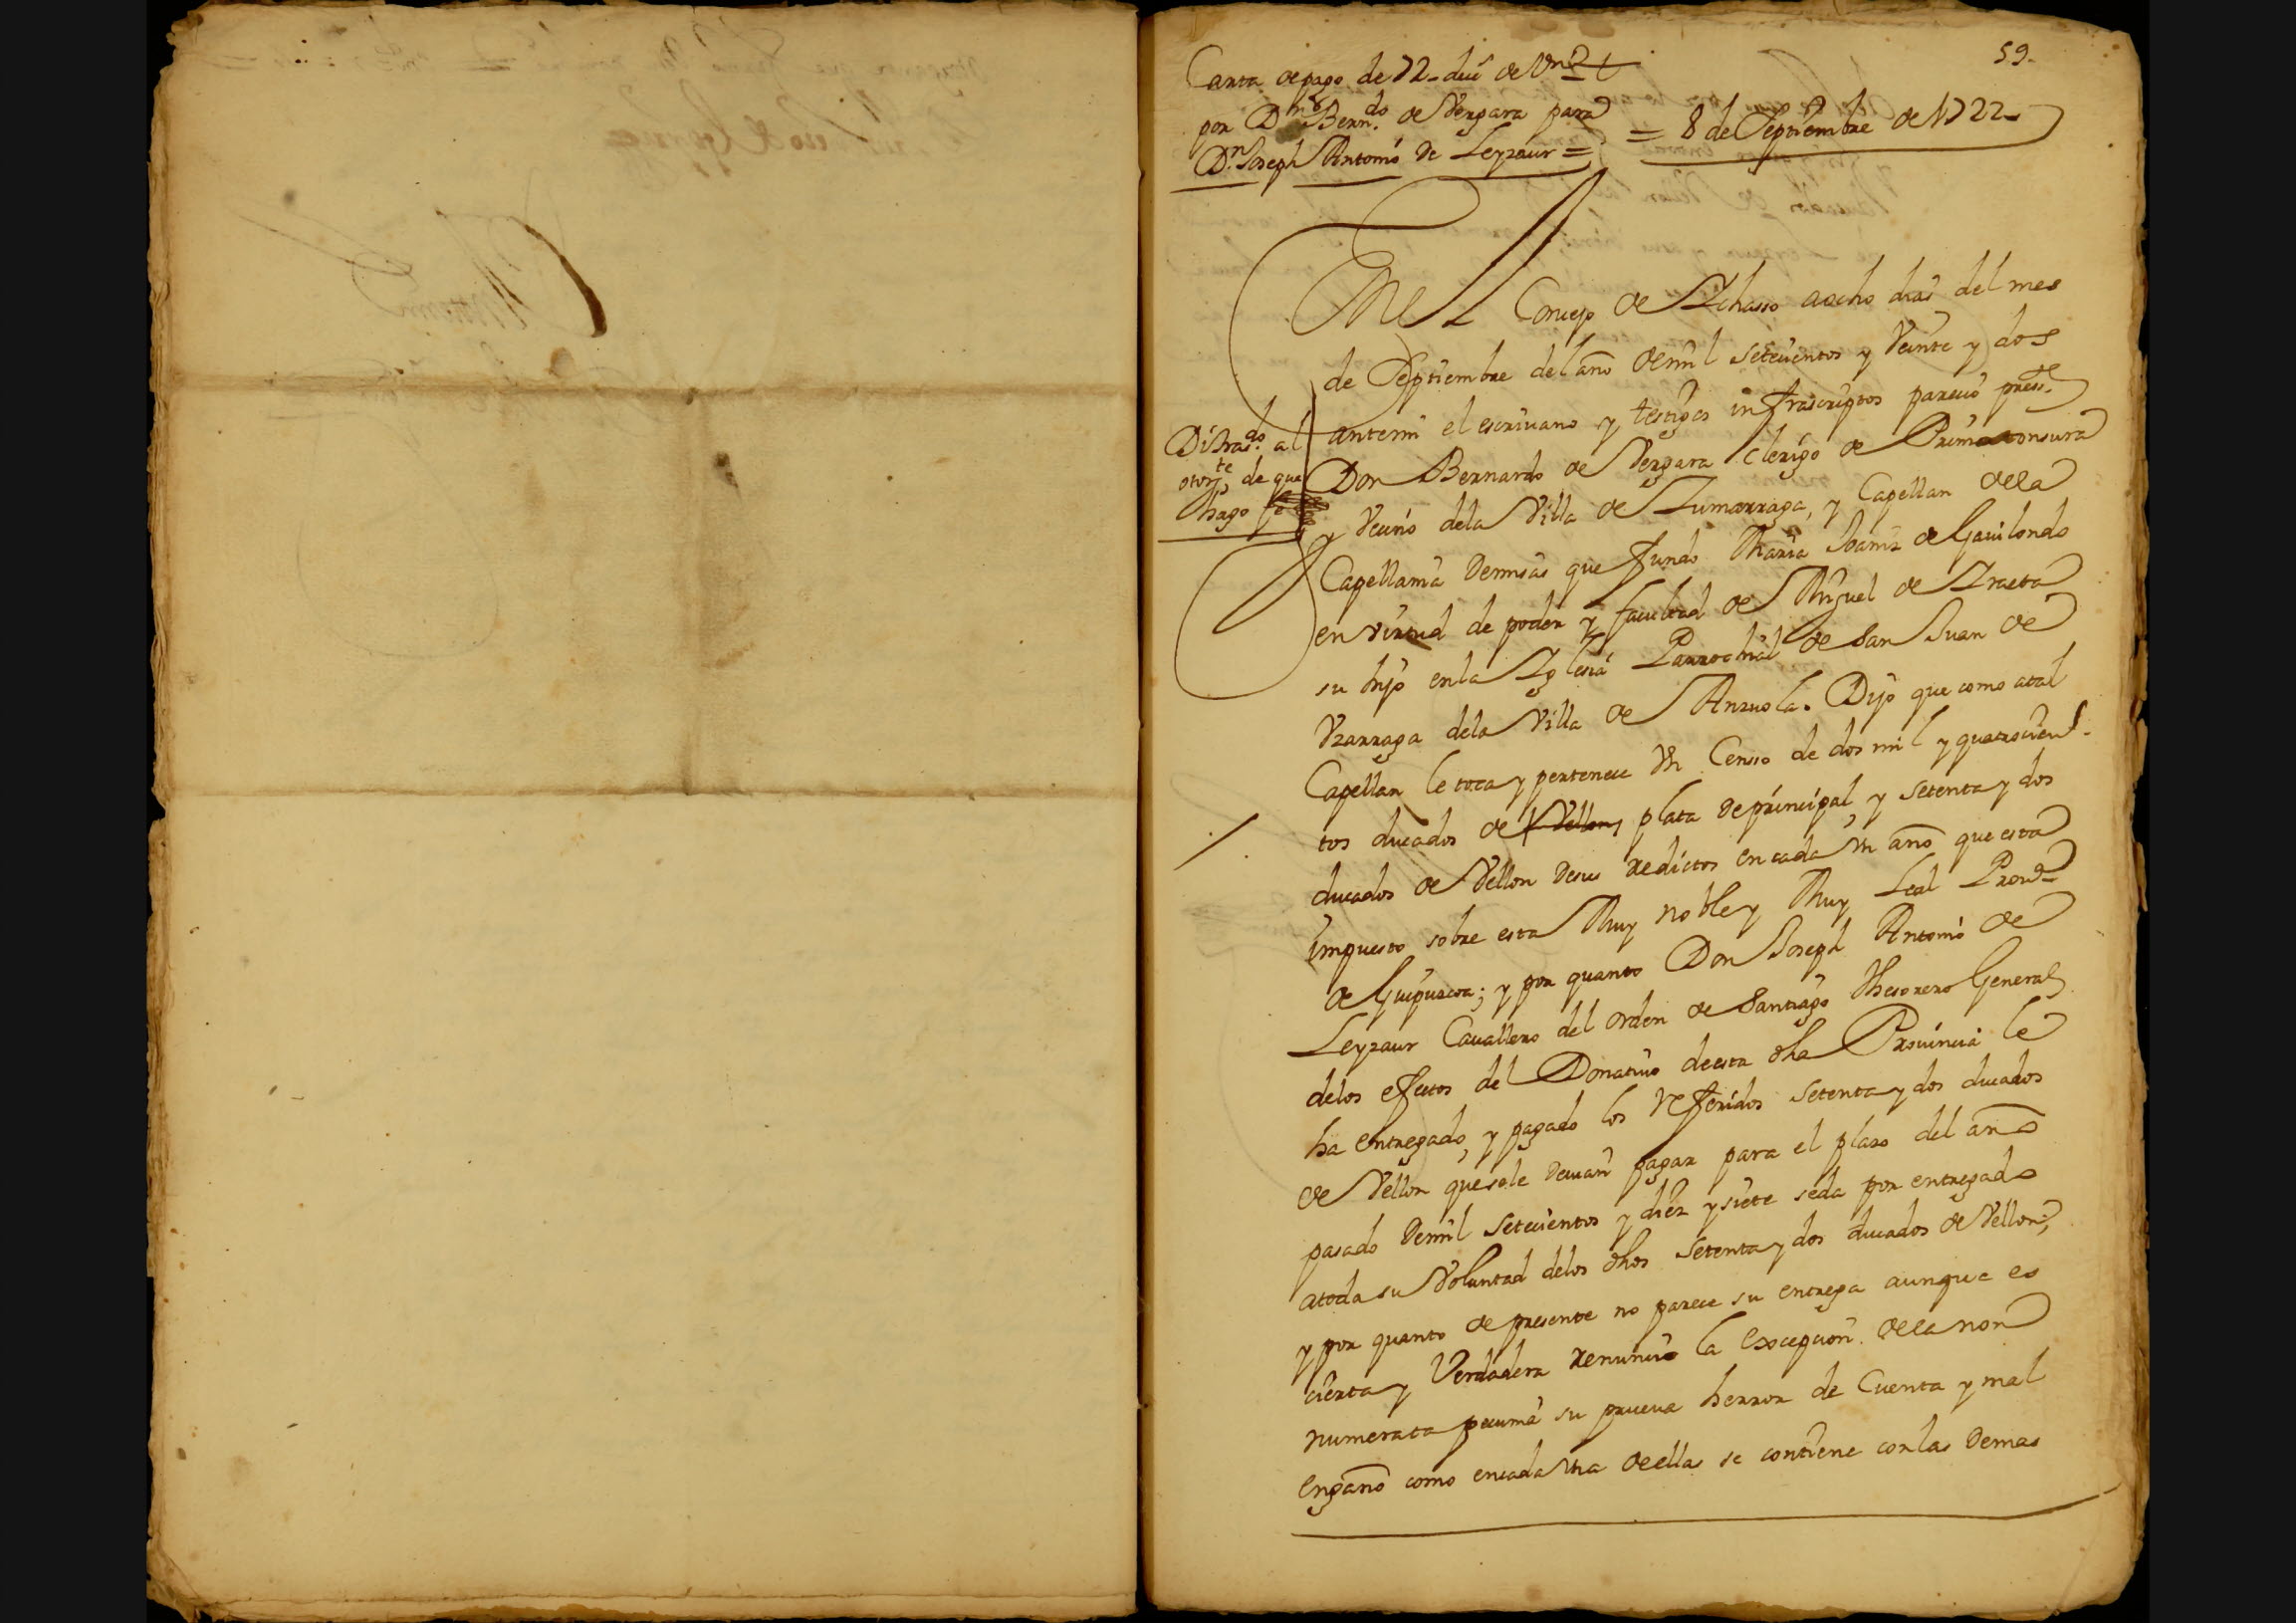 59.
Carta de pago de 72 duc.s de Vn.
por Dn Bern.do de Vergara para
Dn. Joseph Antonio de Leyzaur =
= 8 de Septiembre de 1722
En el Concejo de Ichasso a ocho dias del mes
de Septiembre del año de mil setecientos y Veinte y dos
antemi el escrivano y testigos infrascriptos parecio press.te
Don Bernardo de Vergara Clerigo de Primatonsura
y Vecino dela Villa de Zumarraga, y Capellan dela
Capellania de missas que fundo Maria Ibañez de Gavilondo
en virtud de poder y facultad de Miguel de Iraeta
su hijo en la Iglesia Parrochial de San Juan de
Vzarraga dela Villa de Anzuola. Dijo que como atal
Capellan le toca y pertenece Vn Censo de dos mil y quatrocien-
tos ducados de Vellon plata de principal, y setenta y dos
ducados de Vellon de sus redictos en cada Vn año que esta
impuesto sobre esta Muy noble y Muy Leal Prov.a
de Guipuzcoa; y por quanto Don Joseph Antonio de
Leyzaur Cavallero del orden de Santiago Thesorero General
delos efectos del Donativo deesta dha Provincia le
ha entregado, y pagado los referidos setenta y dos ducados
de Vellon que sele devian pagar para el plazo del año
pasado de mil setecientos y diez y siete seda por entregado
atoda su Voluntad delos dhos setenta y dos ducados de Vellon,
y por quanto de presente no parece su entrega aunque es
cierta y Verdadera renuncio la excepcion dela non
numerata pecunia su prueva herror de Cuenta y mal
engaño como en cada Vna de ellas se contiene con las demas
Dihas.do al
otorg.te de que
hago fe